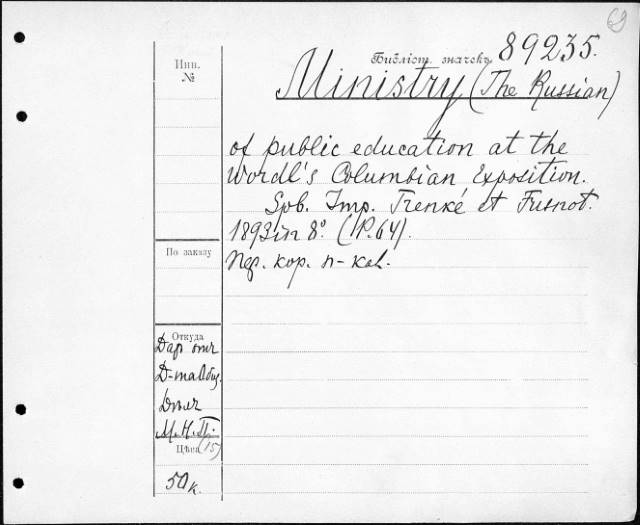 69
Инв.
№
Библіот. значекъ 89235.
Ministry (The Russian)
of public education at the
Wordl's Columbian Exposition.
Spb. Imp. Trenké et Fusnot.
1893 in 8º. (P. 64).
кор.
По заказу
Откуда
Дар отъ
Д-та Общ.
Дѣлъ
М. Н. Пр.
Цѣна (15)
50 к.